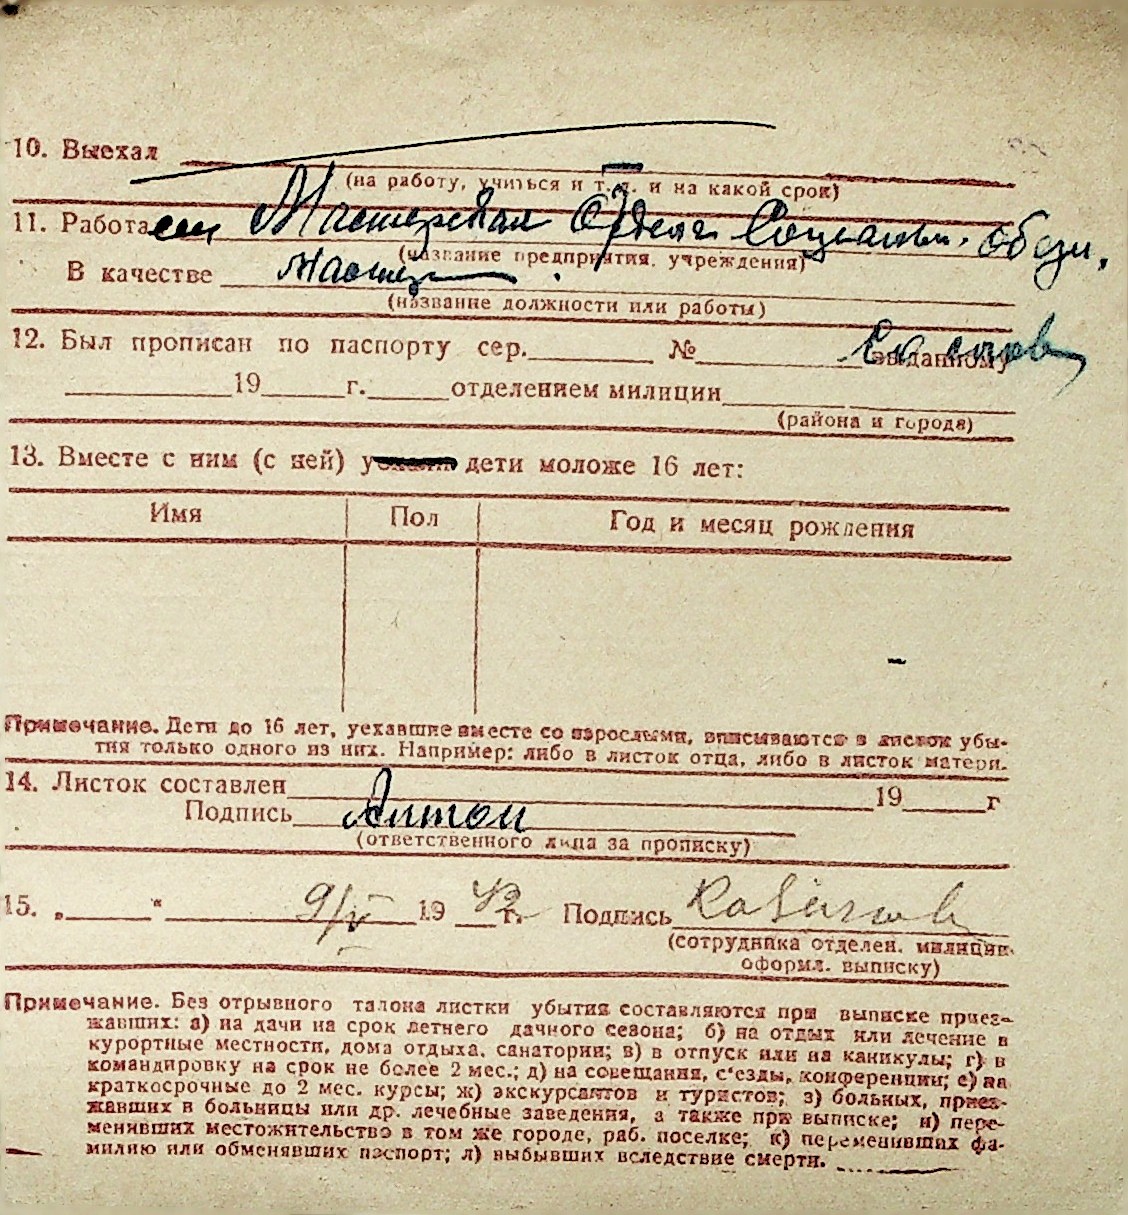 10. Выехал
(на работу, учиться и т. д. и на какой срок)
11. Работа Мастерская Отдела Социальн. обезп.
(название предприятия, учреждения)
В качестве мастер
(название должности или работы)
12. Был прописан по паспорту сер. № выданному
19 г. отделением милиции
(района и города)
13. Вместе с ним (с ней) дети моложе 16 лет:
Имя Пол Год и месяц рождения
Примечание. Дети до 16 лет, уехавшие вместе со взрослыми, вписываются в листок убы-
тия только одного из них. Например: либо в листок отца, либо в листок матери.
14. Листок составлен 19 г
Подпись
(ответственного лица за прописку)
15. „ “ 9/V 1942 г. Подпись
(сотрудника отделен. милиции
оформл. выписку)
Примечание. Без отрывного талона листки убытия составляются при выписке приез-
жавших: а) на дачи на срок летнего дачного сезона; б) на отдых или лечение в
курортные местности, дома отдыха, санатории; в) в отпуск или на каникулы; г) в
командировку на срок не более 2 мес.; д) на совещания, с'езды, конференции; е) на
краткосрочные до 2 мес. курсы; ж) экскурсантов и туристов; з) больных, приез-
жавших в больницы или др. лечебные заведения, а также при выписке; и) пере-
менивших местожительство в том же городе, раб. поселке; к) переменивших фа-
милию или обменявших паспорт; л) выбывших вследствие смерти.